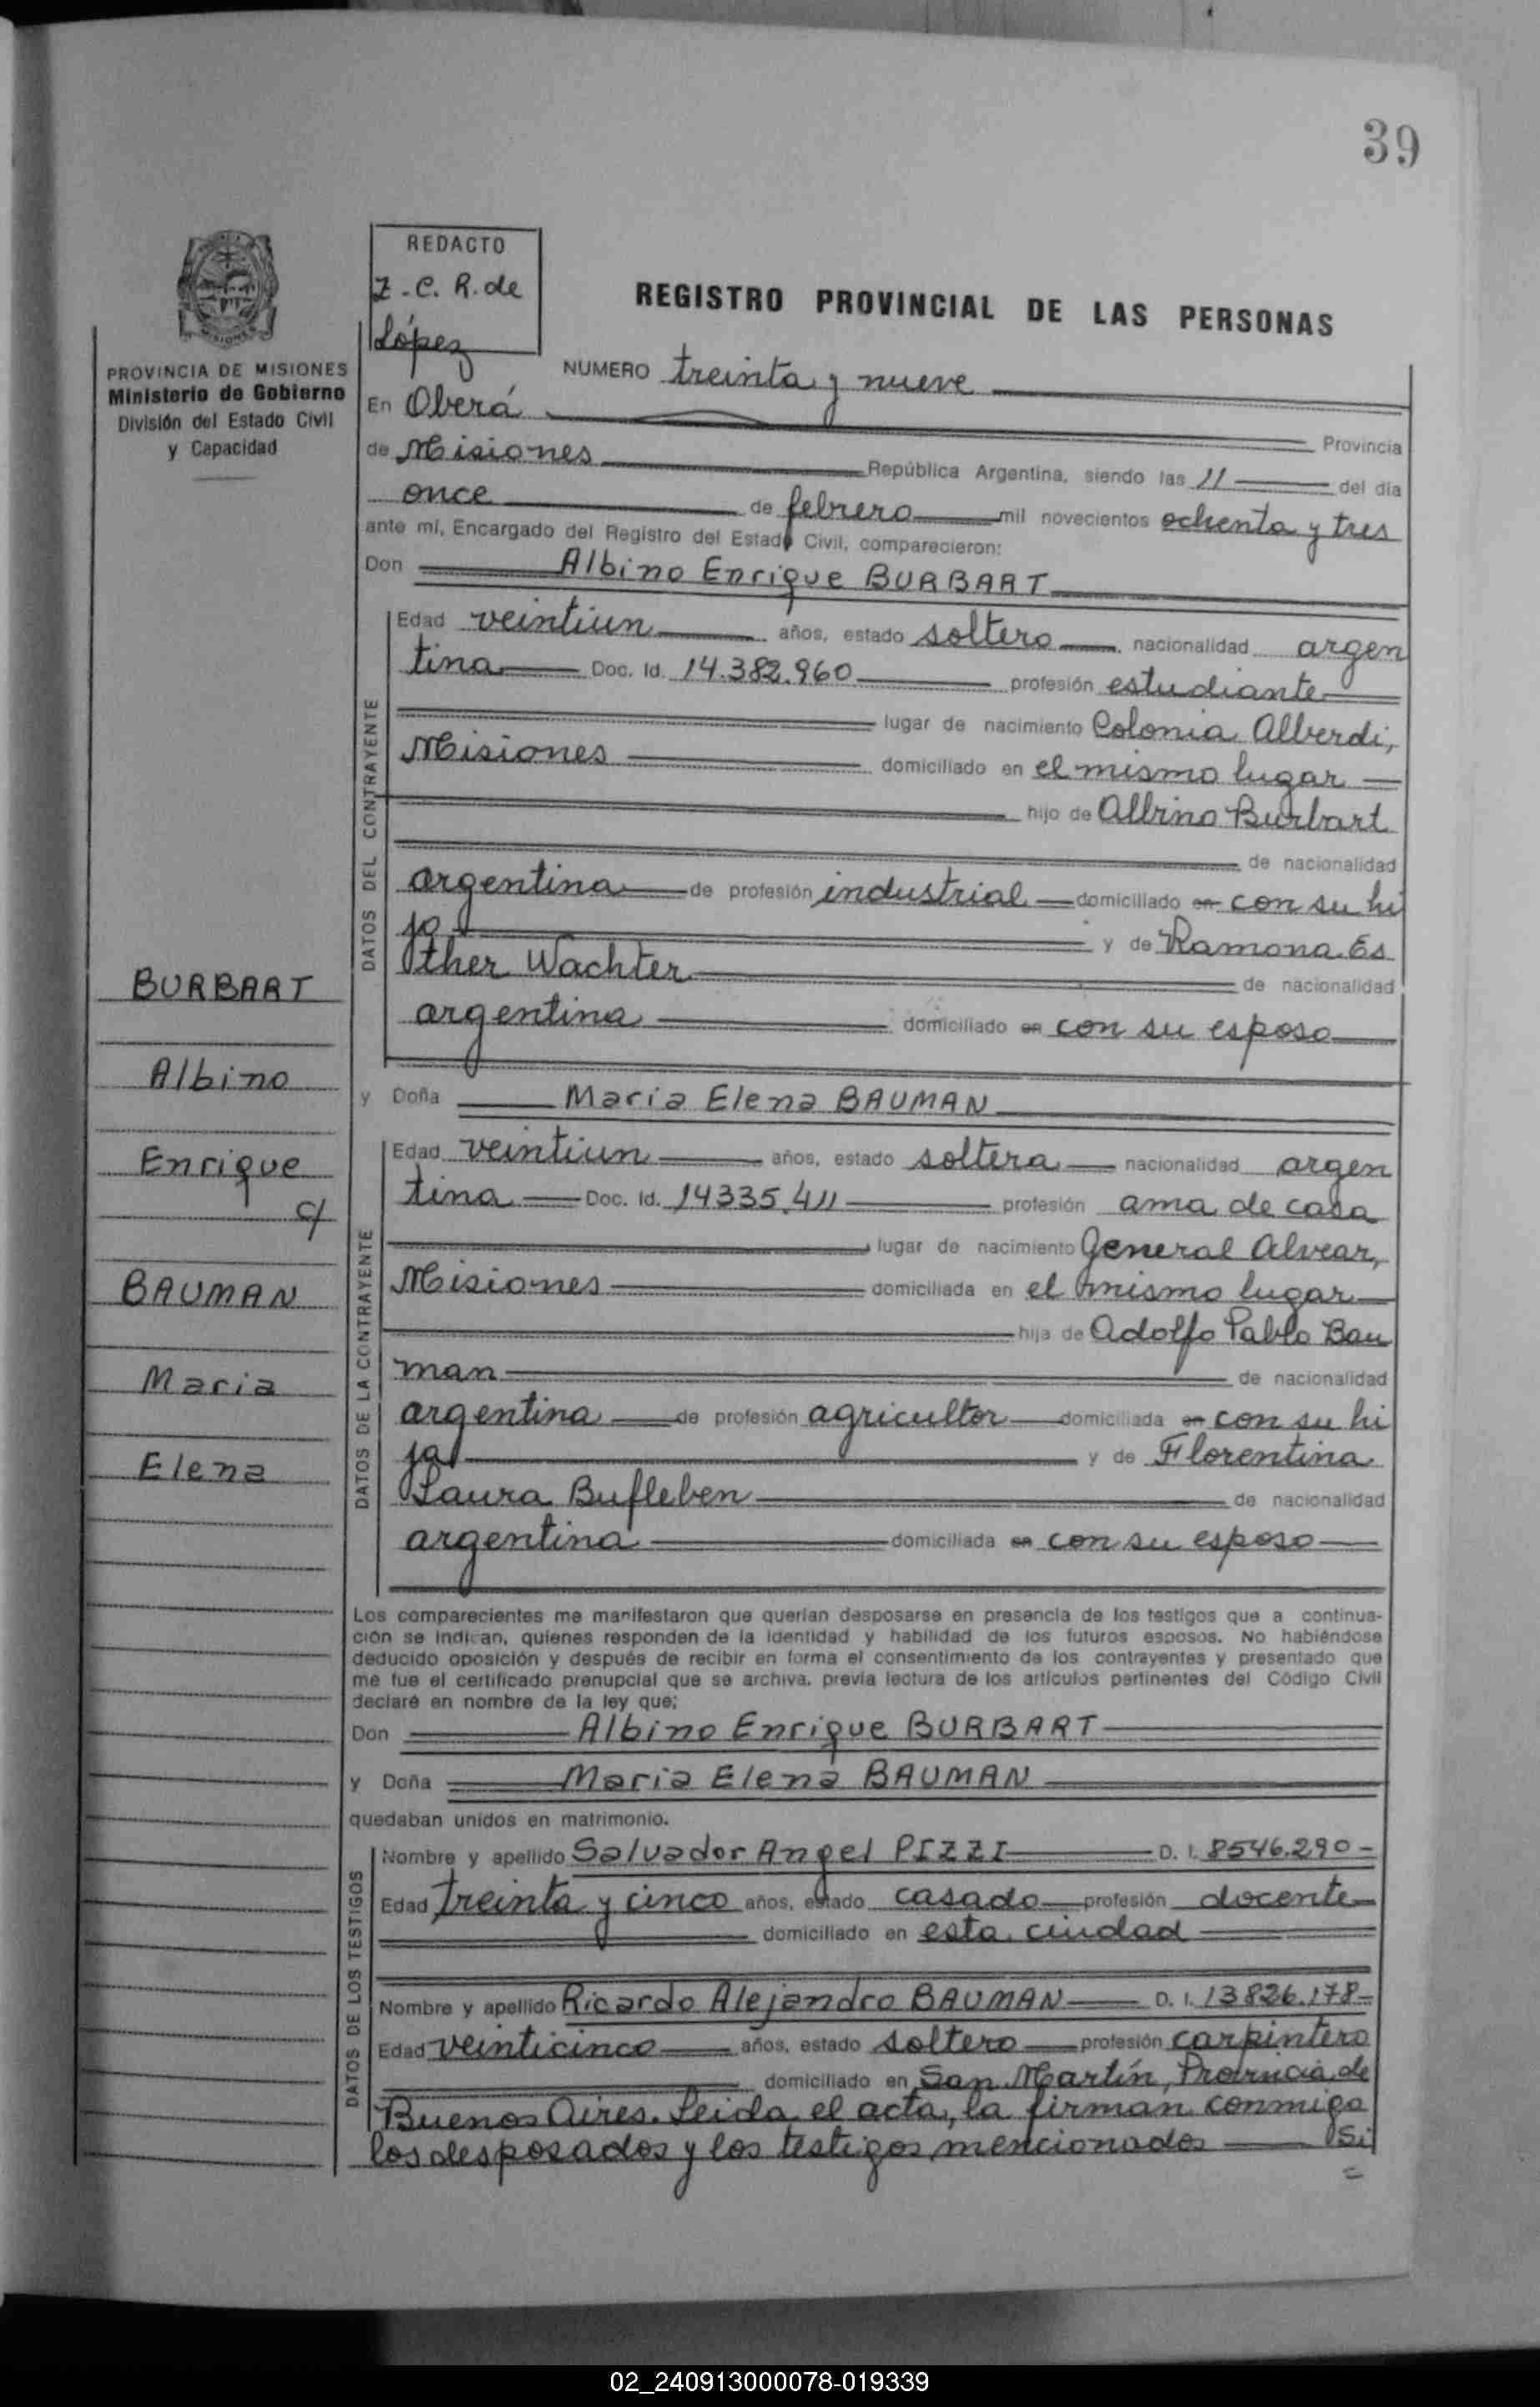 39
REDACTO
Z.C. R. de
López
REGISTRO PROVINCIAL DE LAS PERSONAS
PROVINCIA DE MISIONES
Ministerio de Gobierno
División del Estado Civil
y Capacidad
NUMERO treinta y nueve
En Oberá Provincia
de Misiones República Argentina, siendo las 11 del día
once de febrero mil novecientos ochenta y tres
ante mí, Encargado del Registro del Estado Civil, comparecieron:
Don Albino Enrique BURBART
DATOS DEL CONTRAYENTE
Edad veintiun años, estado soltero nacionalidad argen
tina Doc. Id. 14.382.960 profesión estudiante
lugar de nacimiento Colonia Alberdi,
Misiones domiciliado en el mismo lugar
hijo de Albino Burbart
de nacionalidad
argentina de profesión industrial domiciliado en con su hi
jo y de Ramona Es
ther Wachter de nacionalidad
argentina domiciliado en con su esposo
y Doña Maria Elena BAUMAN
DATOS DE LA CONTRAYENTE
Edad veintiun años, estado soltera nacionalidad argen
tina Doc. Id. 14335.411 profesión ama de casa
lugar de nacimiento General Alvear,
Misiones domiciliada en el mismo lugar
hija de Adolfo Pablo Bau
man de nacionalidad
argentina de profesión agricultor domiciliada en con su hi
ja y de Florentina
Laura Bufleben de nacionalidad
argentina domiciliada en con su esposo
BURBART
Albino
Enrique
c/
BAUMAN
Maria
Elena
Los comparecientes me manifestaron que querían desposarse en presencia de los testigos que a continua-
ción se indican, quienes responden de la identidad y habilidad de los futuros esposos. No habiéndose
deducido oposición y después de recibir en forma el consentimiento de los contrayentes y presentado que
me fue el certificado prenupcial que se archiva, previa lectura de los artículos pertinentes del Código Civil
declaré en nombre de la ley que:
Don Albino Enrique BURBART
y Doña Maria Elena BAUMAN
quedaban unidos en matrimonio.
DATOS DE LOS TESTIGOS
Nombre y apellido Salvador Angel PIZZI D. I. 8546.290-
Edad treinta y cinco años, estado casado profesión docente
domiciliado en esta ciudad
Nombre y apellido Ricardo Alejandro BAUMAN D. I. 13826.178-
Edad veinticinco años, estado soltero profesión carpintero
domiciliado en San Martín, Provincia de
Buenos Aires. Leida el acta, la firman conmigo
los desposados y los testigos mencionados Si
02_240913000078-019339